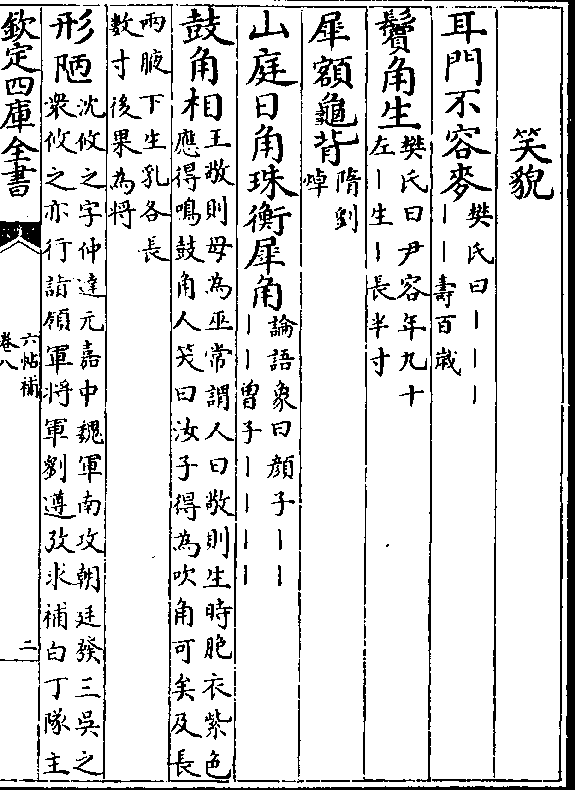 笑貌
耳門不容麥
樊氏曰｜｜｜
｜｜壽百歲
鬢角生
樊氏曰尹容年九十
左｜生｜長半寸
犀額龜背
隋劉
焯
山庭日角珠衡犀角
論語象曰顔子｜｜
｜｜曾子｜｜｜｜
鼓角相
王敬則母為巫常謂人曰敬則生時胞衣紫色
應得鳴鼓角人笑曰汝子得為吹角可矣及長
兩腋下生乳各長
數寸後果為將
形陋
沈攸之字仲達元嘉中魏軍南攻朝廷發三吳之
衆攸之亦行詣領軍將軍劉遵攷求補白丁隊主
欽定四庫全書
六帖補
卷八
二